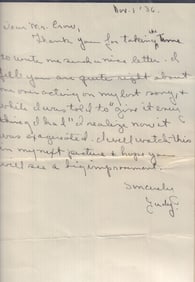 Nov. 1 '36.
Dear Mr. Crow,
Thank you for taking the time
to write me such a nice letter. I
felt you are quite right about
me over acting on my last song, &
while I was told to "give it every
thing I had" I realize now it
was exaggerated. I will watch this
in my next picture & hope you
will see a big improvement.
Sincerely
Judy